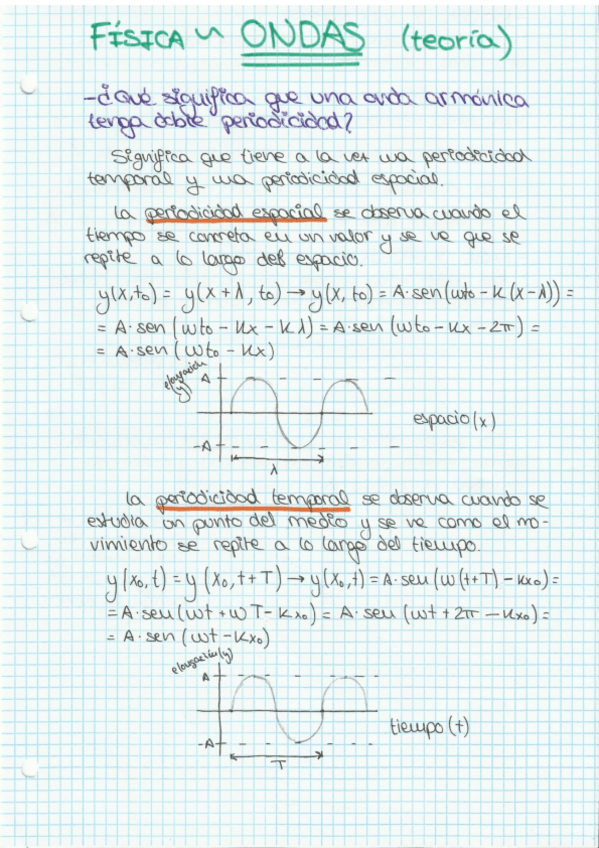 FÍSICA ~ ONDAS (teoría)
-¿Qué significa que una onda armónica
tenga doble periodicidad?
Significa que tiene a la vez una periodicidad
temporal y una periodicidad espacial.
La periodicidad espacial se observa cuando el
tiempo se concreta en un valor y se ve que se
repite a lo largo del espacio.
y(x,to) = y(x + λ, to) → y(x, to) = A·sen(wto - K(x-λ)) =
= A·sen (wto - Kx - Kλ) = A·sen (wto - Kx - 2π) =
= A·sen (wto - Kx)
elongación
(y)
A
espacio (x)
-A
λ
La periodicidad temporal se observa cuando se
estudia un punto del medio y se ve como el mo-
vimiento se repite a lo largo del tiempo.
y(xo,t) = y(xo, t+T) → y(xo,t) = A·sen (w(t+T) - Kxo) =
= A·sen (wt + wT - Kxo) = A·sen (wt + 2π - Kxo) =
= A·sen (wt - Kxo)
elongación (y)
A
tiempo (t)
-A
T